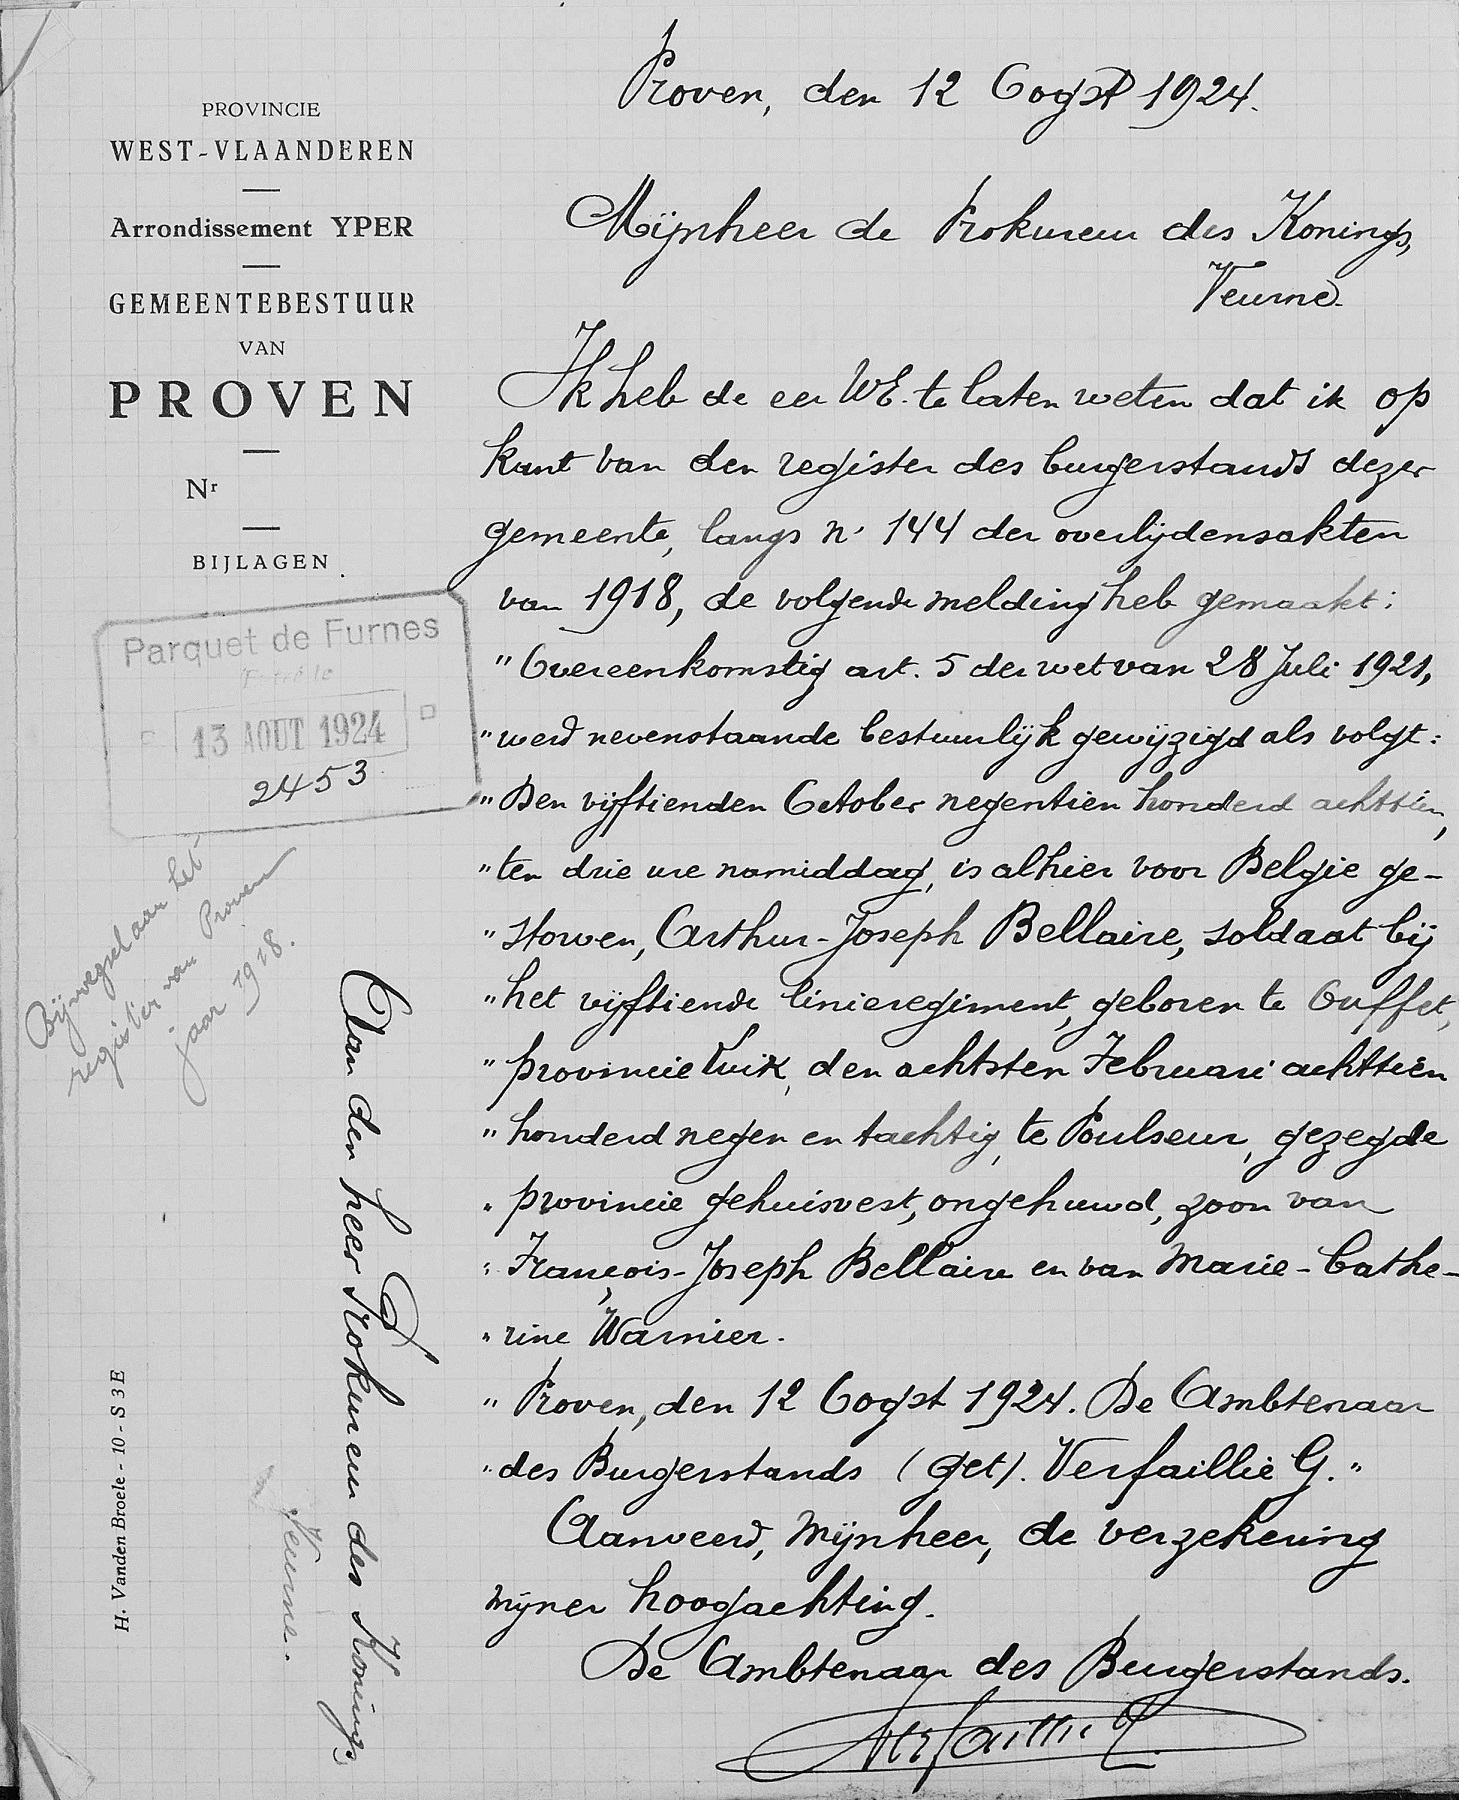 PROVINCIE
WEST-VLAANDEREN
Arrondissement YPER
GEMEENTEBESTUUR
VAN
PROVEN
Nr
BIJLAGEN
Parquet de Furnes
13 AOUT 1924
2453
Bijvoegsel aan het
register van Proven
jaar 1918.
Aan den heer Prokureur des Konings,
Veurne.
H. Vanden Broele - 10 - S 3 E
Proven, den 12 Oogst 1924.
Mijnheer de Prokureur des Konings,
Veurne.
Ik heb de eer UwE. te laten weten dat ik op
kant van den register des burgerstands dezer
gemeente, langs nr 144 der overlijdensakten
van 1918, de volgende melding heb gemaakt:
"Overeenkomstig art. 5 der wet van 28 Juli 1921,
"werd nevenstaande bestuurlijk gewijzigd als volgt:
"Den vijftienden October negentien honderd achttien,
"ten drie ure namiddag, is alhier voor Belgie ge-
"storven, Arthur-Joseph Bellaire, soldaat bij
"het vijftiende linieregiment, geboren te Ouffet,
"provincie Luik, den achtsten Februari achttien
"honderd negen en tachtig, te Poulseur, gezegde
"provincie gehuisvest, ongehuwd, zoon van
"François-Joseph Bellaire en van Marie-Cathe-
"rine Warnier.
"Proven, den 12 Oogst 1924. De Ambtenaar
"des Burgerstands (get). Verfaillie G."
Aanveerd, Mijnheer, de verzekering
mijner hoogachting.
De Ambtenaar des Burgerstands.
Verfaillie G.